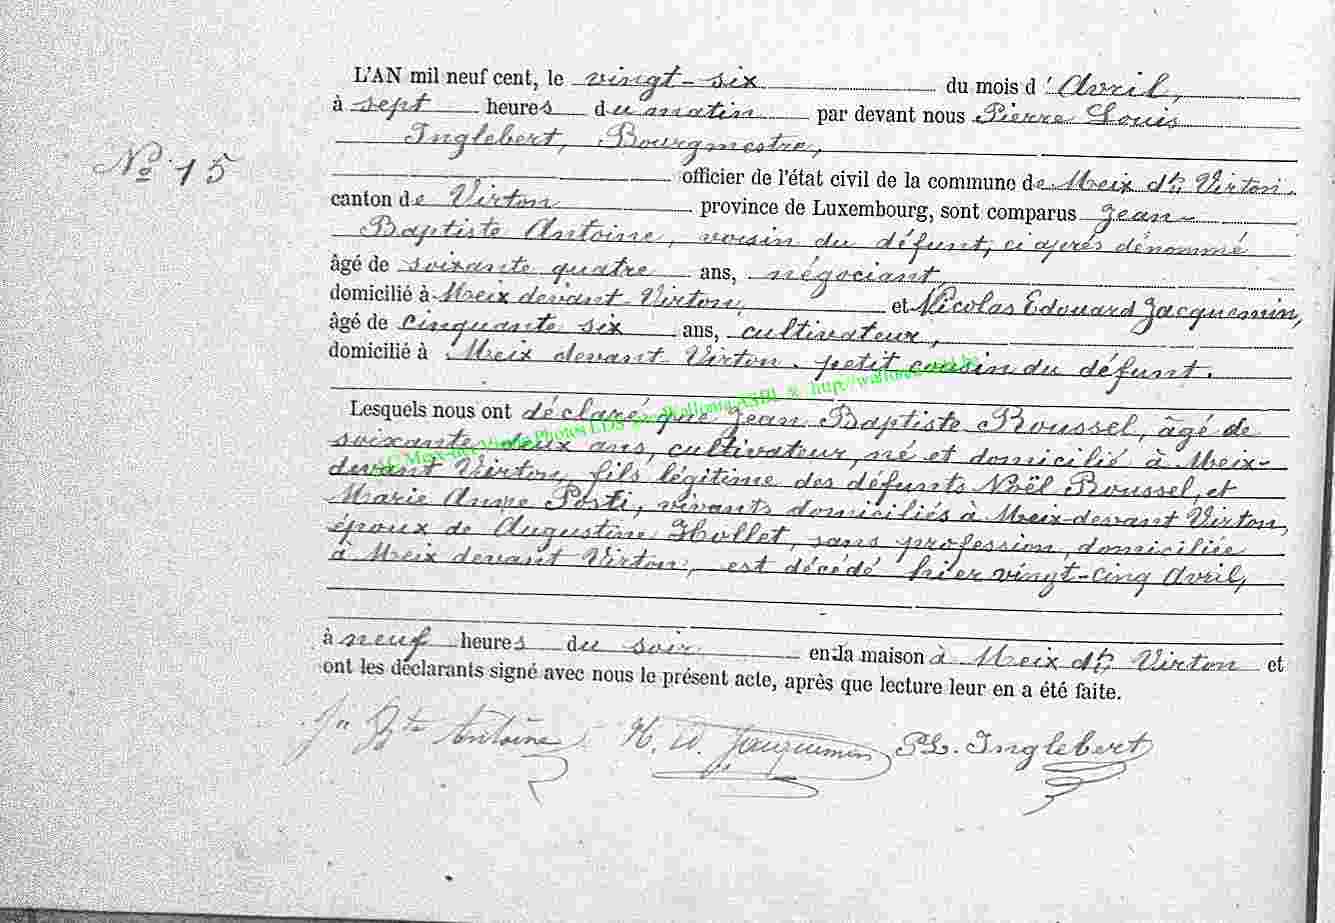 L'AN mil neuf cent, le vingt-six du mois d'Avril,
à sept heures du matin par devant nous Pierre Louis
Inglebert, Bourgmestre,
N° 15
officier de l'état civil de la commune de Meix dt Virton.
canton de Virton province de Luxembourg, sont comparus Jean-
Baptiste Antoine, voisin du défunt, ci après dénommé
âgé de soixante quatre ans, négociant,
domicilié à Meix devant-Virton, et Nicolas Edouard Jacquemin,
âgé de cinquante six ans, cultivateur,
domicilié à Meix devant Virton. petit cousin du défunt.
Lesquels nous ont déclaré que Jean Baptiste Roussel, âgé de
soixante deux ans, cultivateur, né et domicilié à Meix-
devant Virton, fils légitime des défunts Noël Roussel, et
Marie Anne Posti, vivants domiciliés à Meix-devant Virton,
époux de Augustine Hollet, sans profession, domiciliée
à Meix devant Virton, est décédé hier vingt-cinq Avril,
à neuf heures du soir en la maison à Meix dt Virton et
ont les déclarants signé avec nous le présent acte, après que lecture leur en a été faite.
Jn Bte Antoine N. Ed. Jacquemin PL. Inglebert